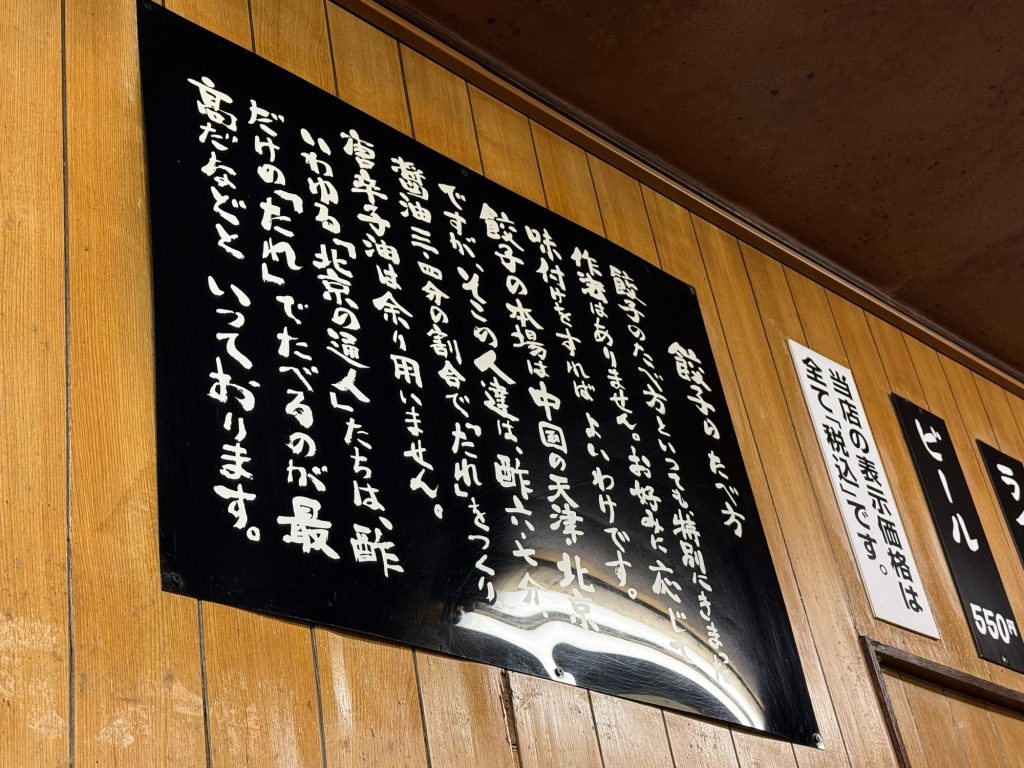 餃子のたべ方
餃子のたべ方といっても特別にきまった
作法はありません。お好みに応じて
味付けをすればよいわけです。
餃子の本場は中国の天津・北京
ですが、そこの人達は、酢六・七分、
醤油三・四分の割合で「たれ」をつくり
唐辛子油は余り用いません。
いわゆる「北京の通人」たちは、酢
だけの「たれ」でたべるのが最
高だなどといっております。
当店の表示価格は
全て「税込」です。
ビール
550円
ラ